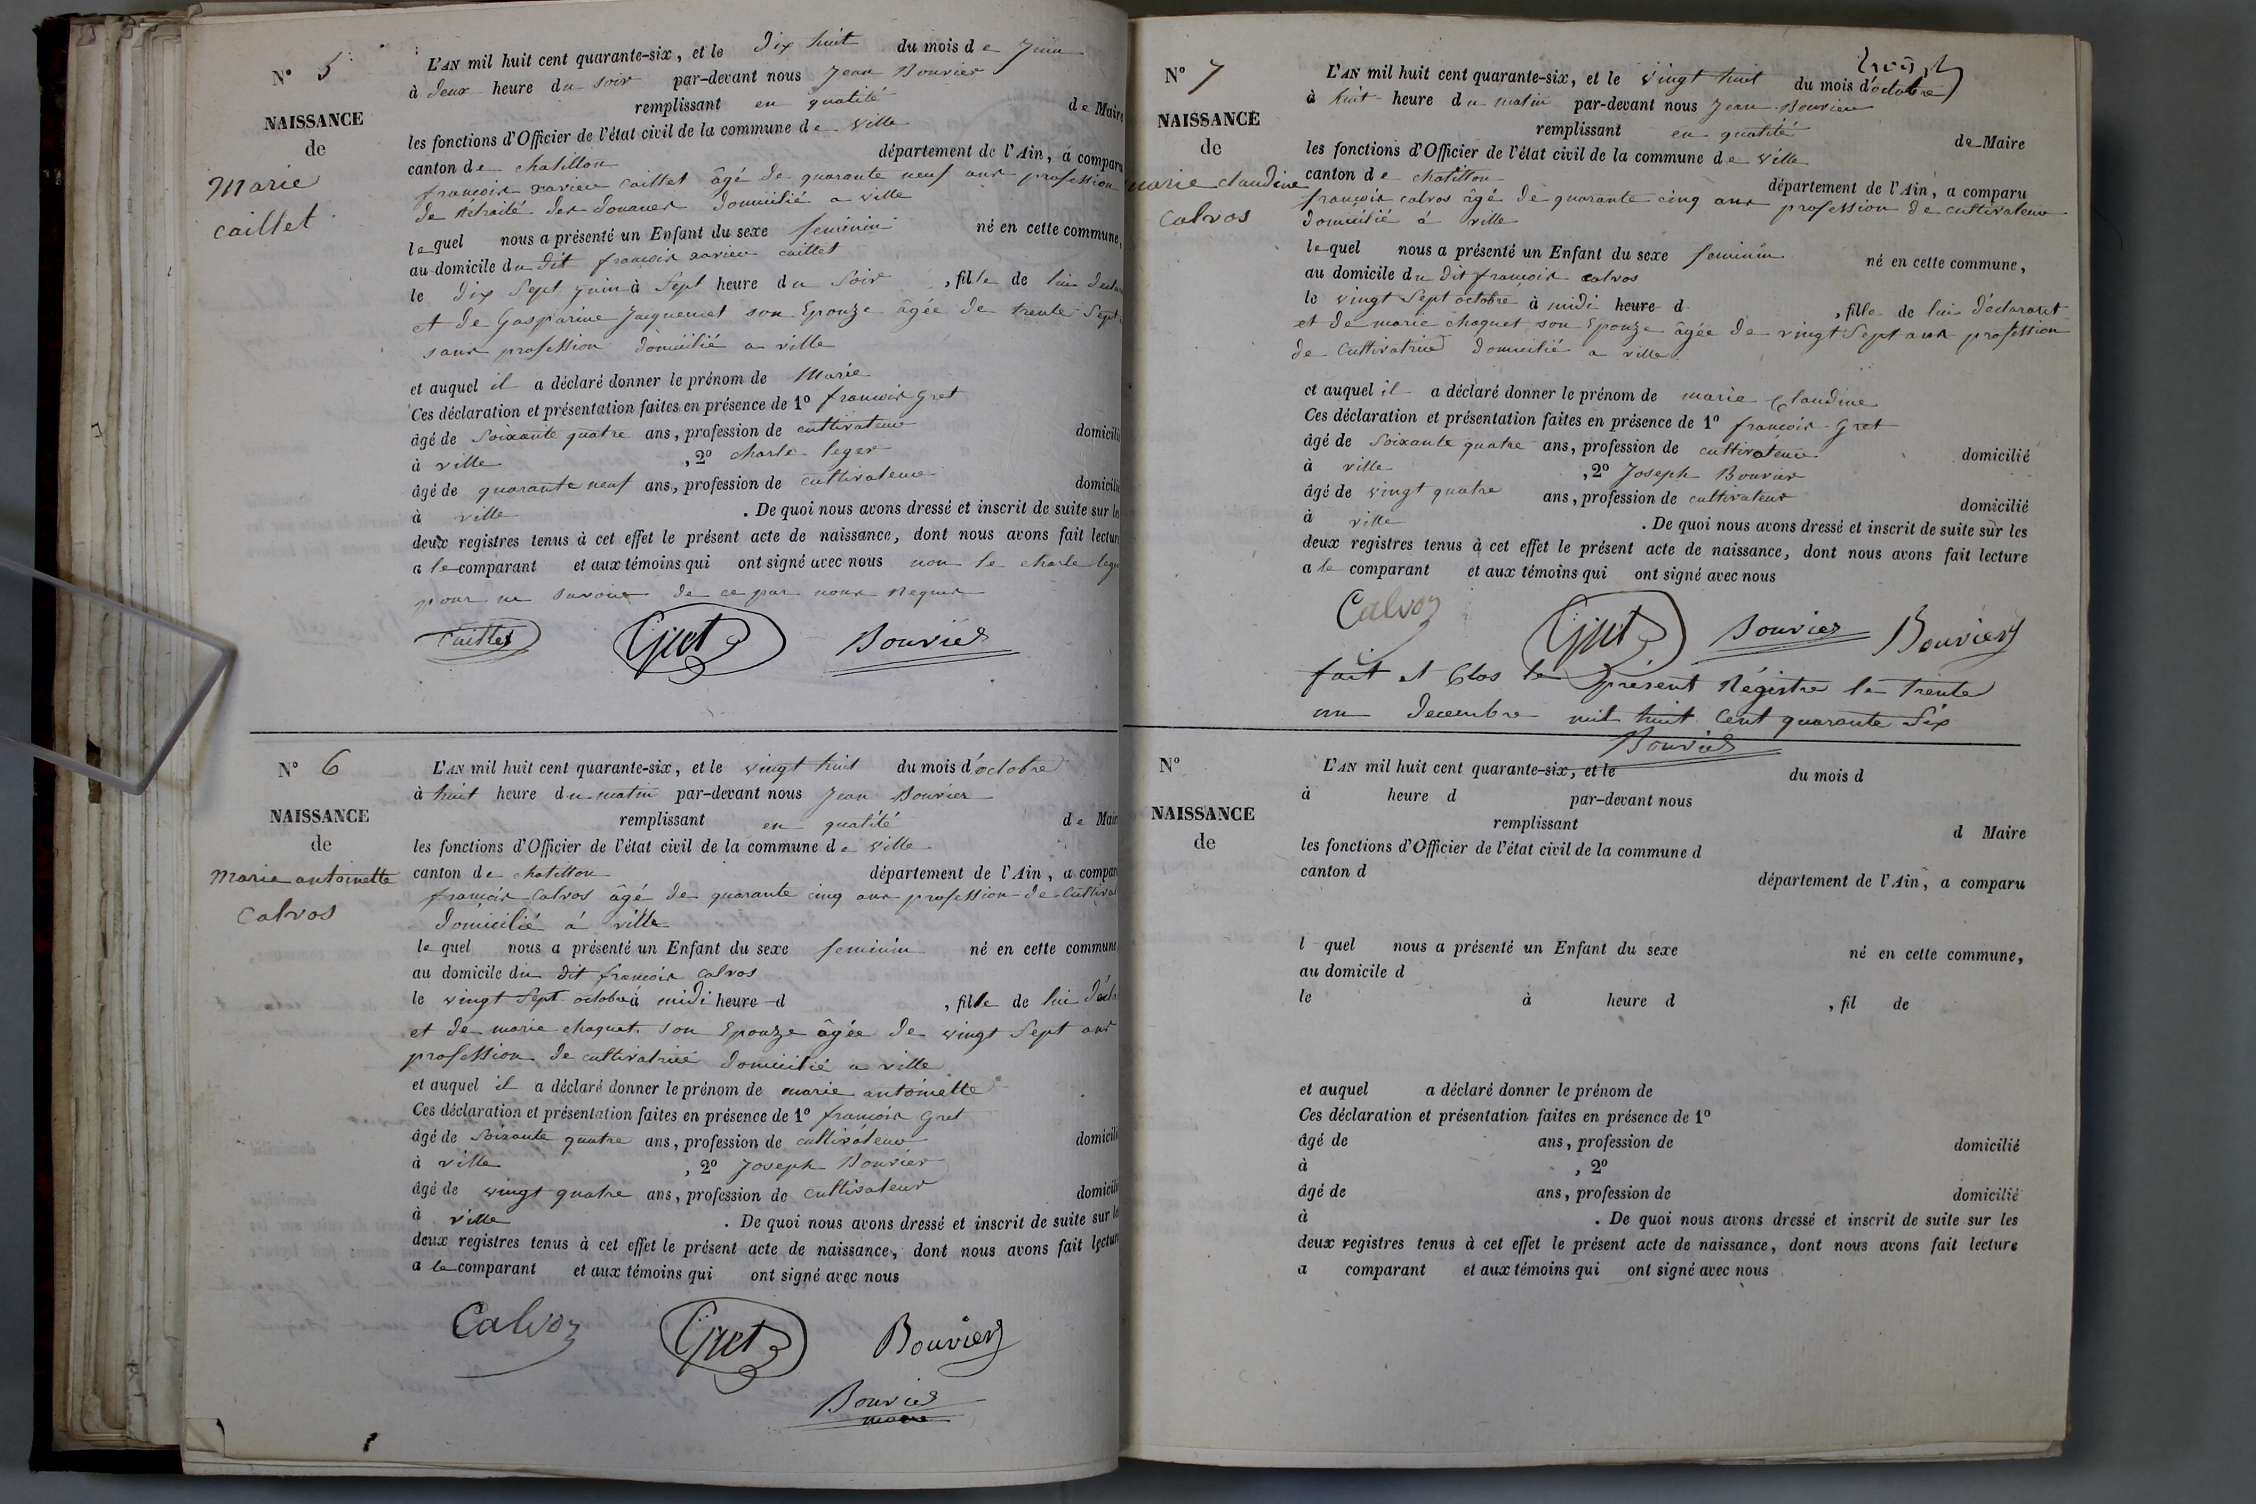 N° 5
NAISSANCE
de
Marie
caillet
L'AN mil huit cent quarante-six, et le Dix huit du mois de Juin
à Deux heure du soir par-devant nous Jean Bouvier
remplissant en qualité de Maire
les fonctions d'Officier de l'état civil de la commune de ville
canton de chatillon département de l'Ain, a comparu
francois xavier caillet âgé de quarante neuf ans profession
de Rétraité des douanes domicilié a ville
lequel nous a présenté un Enfant du sexe feminin né en cette commune,
au domicile du dit francois xavier caillet
le dix Sept juin à Sept heure du Soir, fille de lui déclar
et de Gasparine Jacquemet son Epouze âgée de trente Sept
sans profession domicilié a ville
et auquel il a déclaré donner le prénom de Marie
Ces déclaration et présentation faites en présence de 1° francois Gret
âgé de Soixante quatre ans, profession de cultivateur domicilié
à ville, 2° charle leger
âgé de quarante neuf ans, profession de cultivateur domicilié
à ville. De quoi nous avons dressé et inscrit de suite sur les
deux registres tenus à cet effet le présent acte de naissance, dont nous avons fait lecture
a le comparant et aux témoins qui ont signé avec nous non le charle leger
pour ne savoir de ce par nous Requis
Caillet Gret Bouvier
N° 6
NAISSANCE
de
Marie antoinette
Calvos
L'AN mil huit cent quarante-six, et le vingt huit du mois d'octobre
à huit heure du matin par-devant nous Jean Bouvier
remplissant en qualité de Maire
les fonctions d'Officier de l'état civil de la commune de ville
canton de chatillon département de l'Ain, a comparu
francois Calvos âgé de quarante cinq ans profession de Cultivat
Domicilié á ville
lequel nous a présenté un Enfant du sexe feminin né en cette commune
au domicile du dit francois Calvos
le vingt Sept octobre à midi heure d, fille de lui décla
et de marie chaquet son Epouze âgée de vingt Sept ans
profession de cultivatrice domicilié a ville
et auquel il a déclaré donner le prénom de marie antoinette
Ces déclaration et présentation faites en présence de 1° francois Gret
âgé de Soixante quatre ans, profession de cultivateur domicilié
à ville, 2° Joseph Bouvier
âgé de vingt quatre ans, profession de cultivateur domicilié
à ville. De quoi nous avons dressé et inscrit de suite sur les
deux registres tenus à cet effet le présent acte de naissance, dont nous avons fait lecture
a le comparant et aux témoins qui ont signé avec nous
Calvoz Gret Bouvier
Bouvier
maire
N° 7
NAISSANCE
de
marie claudine
Calvos
L'AN mil huit cent quarante-six, et le vingt huit du mois d'octobre
à huit heure du matin par-devant nous Jean Bouvier
remplissant en qualité de Maire
les fonctions d'Officier de l'état civil de la commune de ville
canton de chatillon département de l'Ain, a comparu
francois calvos âgé de quarante cinq ans profession de cultivateur
domicilié á ville
lequel nous a présenté un Enfant du sexe feminin né en cette commune,
au domicile du dit francois calvos
le vingt Sept octobre à midi heure d, fille de lui déclarant
et de marie chaquet son Epouze âgée de vingt Sept ans profession
de Cultivatrice domicilié a ville
et auquel il a déclaré donner le prénom de marie Claudine
Ces déclaration et présentation faites en présence de 1° francois Gret
âgé de Soixante quatre ans, profession de cultivateur domicilié
à ville, 2° Joseph Bouvier
âgé de vingt quatre ans, profession de cultivateur domicilié
à ville. De quoi nous avons dressé et inscrit de suite sur les
deux registres tenus à cet effet le présent acte de naissance, dont nous avons fait lecture
a le comparant et aux témoins qui ont signé avec nous
Calvoz Gret Bouvier Bouvier
fait et Clos le présent Régistre le trente
un Decembre mil huit Cent quarante Six
Bouvier
N°
NAISSANCE
de
L'AN mil huit cent quarante-six, et le du mois d
à heure d par-devant nous
remplissant d Maire
les fonctions d'Officier de l'état civil de la commune d
canton d département de l'Ain, a comparu
l quel nous a présenté un Enfant du sexe né en cette commune,
au domicile d
le à heure d, fil de
et auquel a déclaré donner le prénom de
Ces déclaration et présentation faites en présence de 1°
âgé de ans, profession de domicilié
à, 2°
âgé de ans, profession de domicilié
à. De quoi nous avons dressé et inscrit de suite sur les
deux registres tenus à cet effet le présent acte de naissance, dont nous avons fait lecture
a comparant et aux témoins qui ont signé avec nous